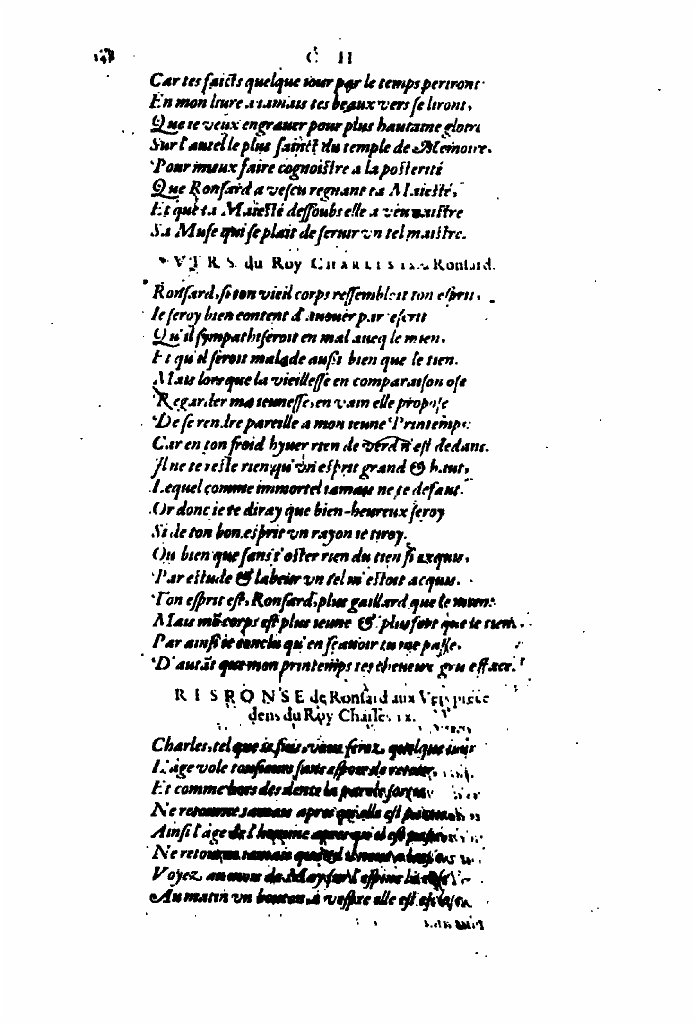 Car tes faicts quelque iour par le temps periront
En mon liure a iamais tes beaux vers se liront,
Que ie veux engrauer pour plus hautaine gloire
Sur l'autel le plus sainct du temple de Memoire,
Pour mieux faire cognoistre a la posterité
Que Ronsard a vescu regnant ta Maiesté,
Et que ta Maiesté dessoubs elle a veu naistre
Sa Muse qui se plait de seruir vn tel maistre.
VERS du Roy CHARLES IX. a Ronsard.
Ronsard, si ton vieil corps ressembloit ton esprit,
Ie seroy bien content d'auouer par escrit
Qu'il sympathiseroit en mal auecq le mien,
Et qu'il seroit malade aussi bien que le tien.
Mais lors que la vieillesse en comparaison ose
Regarder ma ieunesse, en vain elle propose
De se rendre pareille a mon ieune Printemps:
Car en ton froid hyuer rien de verd n'est dedans.
Il ne te reste rien qu'vn esprit grand & haut,
Lequel comme immortel iamais ne te defaut.
Or donc ie te diray que bien-heureux seroy
Si de ton bon esprit vn rayon ie tiroy.
Ou bien que sans t'oster rien du tien si exquis,
Par estude & labeur vn tel m'estoit acquis.
Ton esprit est, Ronsard, plus gaillard que le mien:
Mais mõ corps est plus ieune & plus fort que le tien.
Par ainsi ie conclu qu'en sçauoir tu me passe,
D'autãt que mon printemps tes cheueux gris efface.
RESPONSE de Ronsard aux Vers
du Roy Charles IX.
Charles, tel que ie suis, vous serez quelque iour
L'âge vole tousiours sans espoir de retour,
Et comme hors des dents la parole sortie
Ne retourne iamais apres qu'elle est
Ainsi l'âge de l'homme apres qu'il est
Ne retourne iamais quand
Voyez au mois de May sur l'espine
Au matin vn bouton, à vespre elle est esclose,